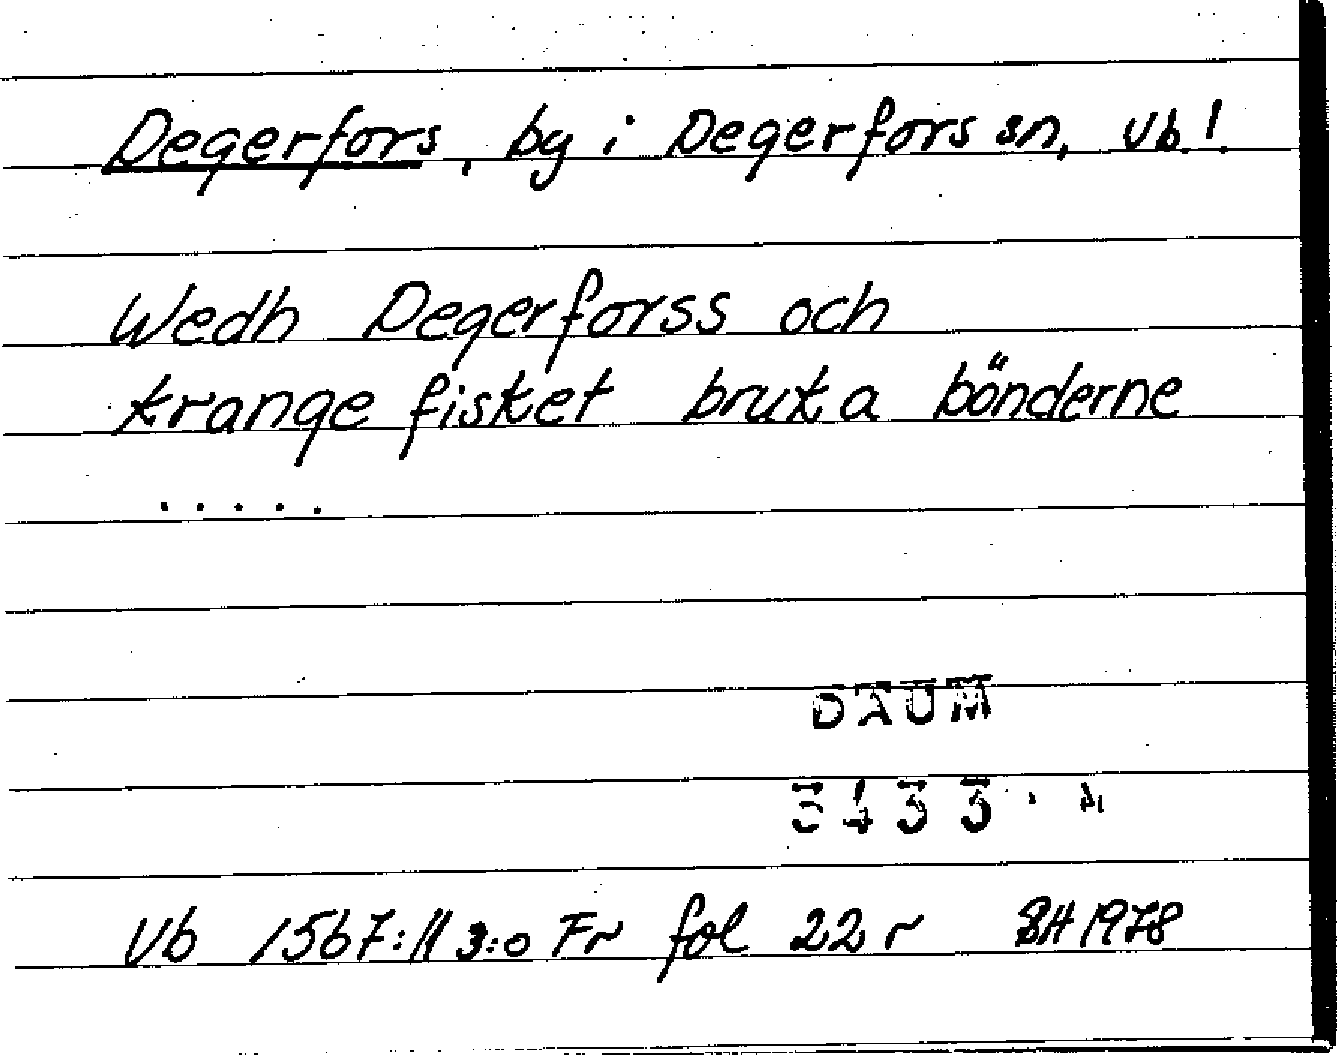 Degerfors, by i Degerfors sn, Vb!
Wedh Degerforss och
krange fisket bruka bönderne
.....
DAUM
3433
Vb 1567:11 3:o Fr fol 22 r 1978